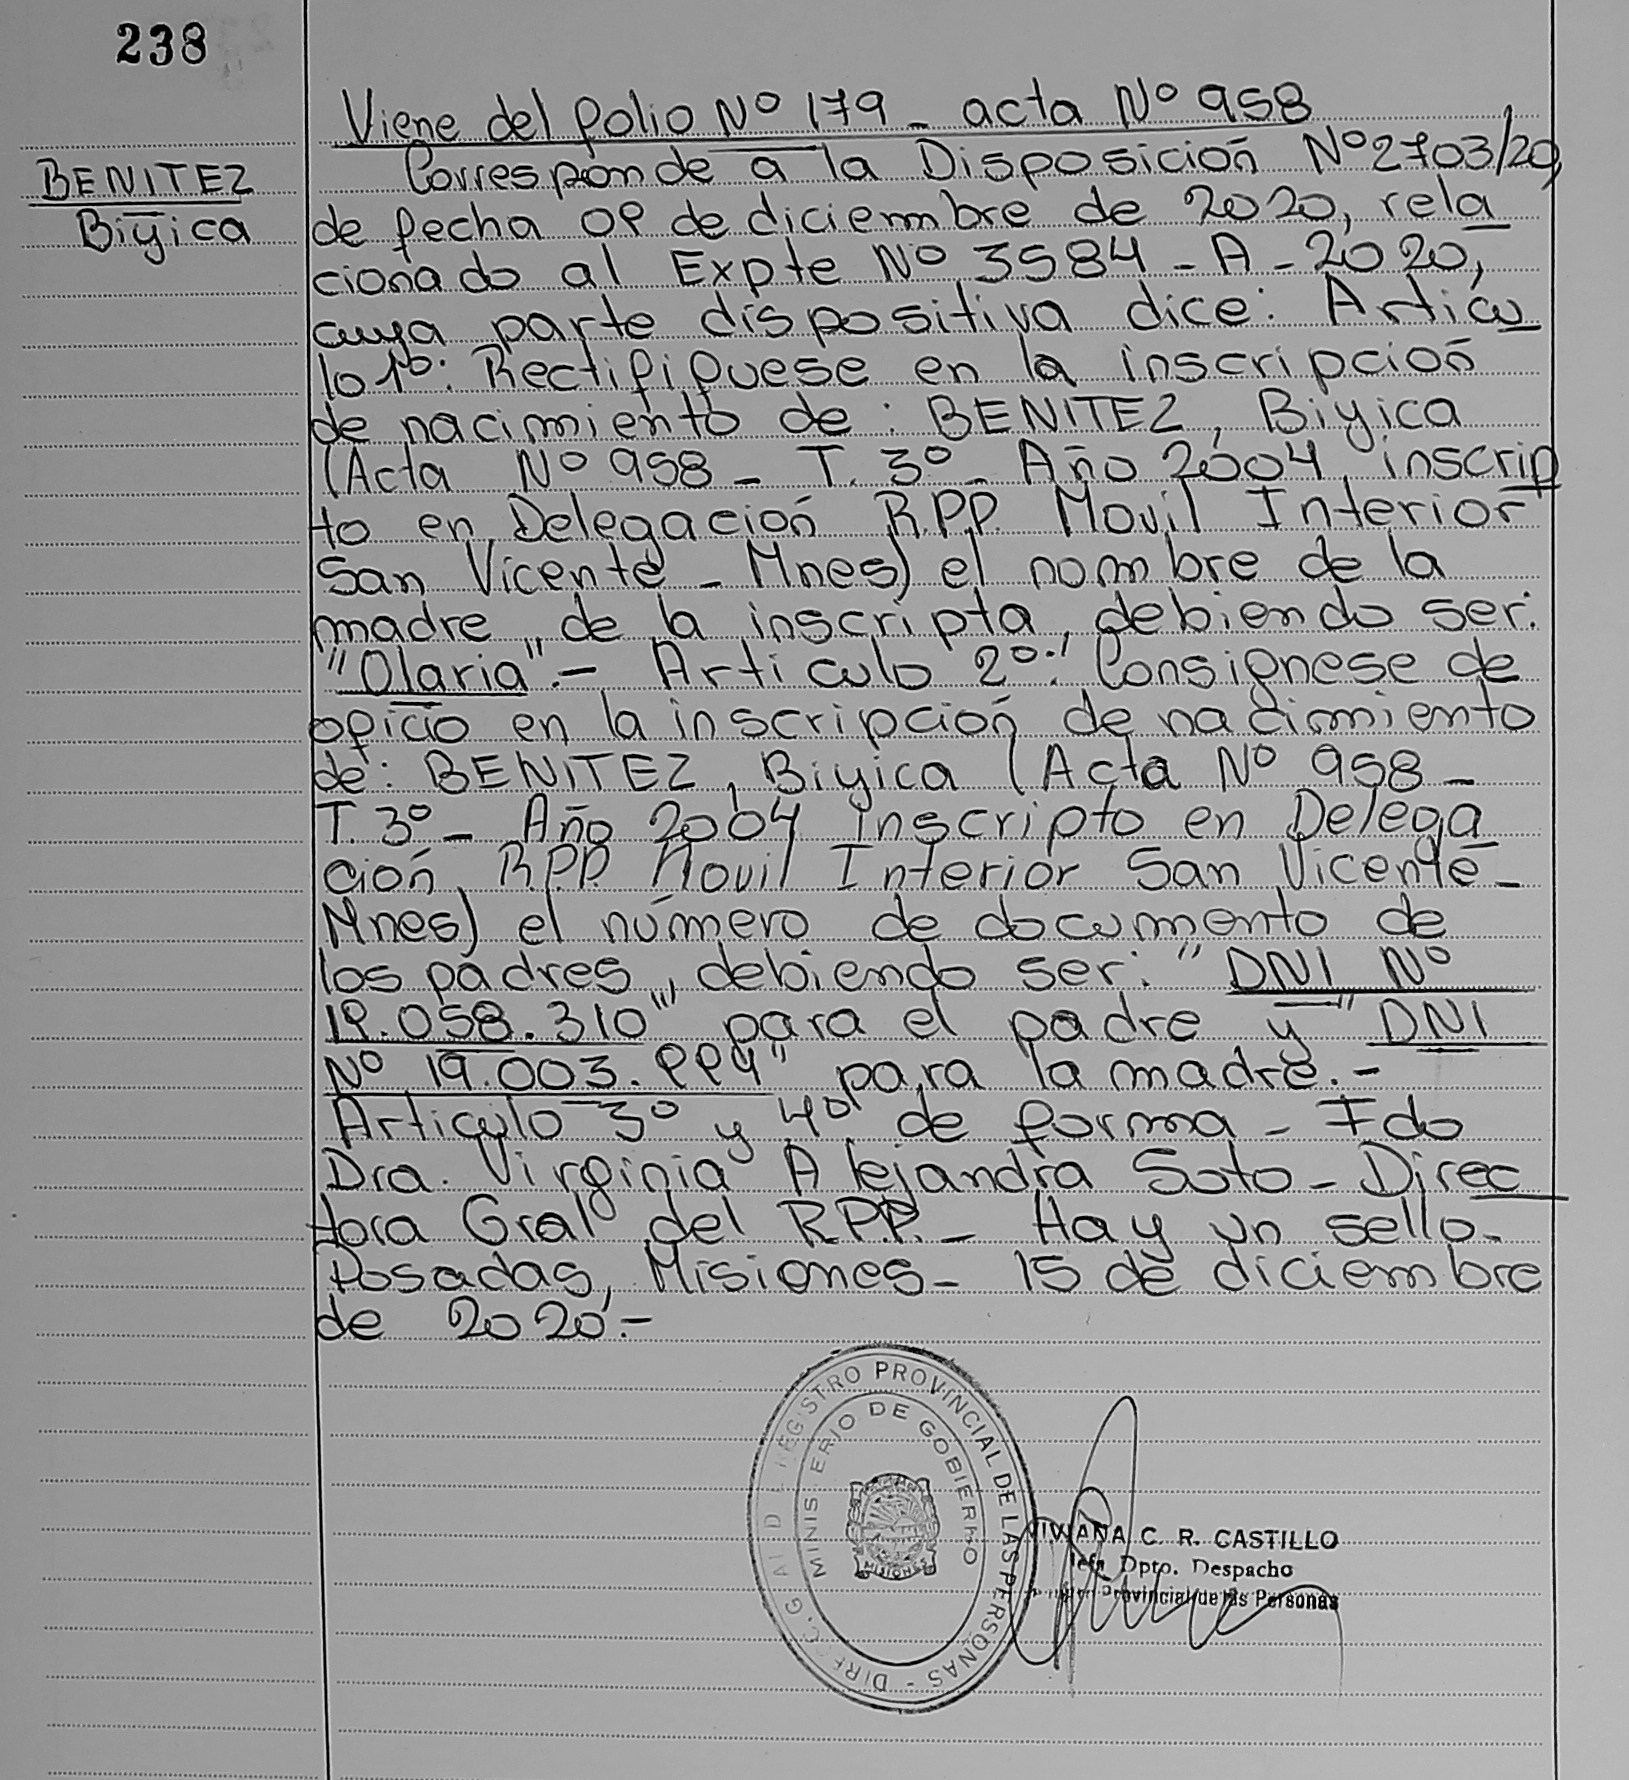 238
Viene del folio Nº 179 - acta Nº 958
BENITEZ
Biyica
Corresponde a la Disposición Nº 2703/20,
de fecha 09 de diciembre de 2020, rela
cionado al Expte Nº 3584 - A - 2020,
cuya parte dispositiva dice: Artícu
lo 1º: Rectifíquese en la inscripción
de nacimiento de: BENITEZ, Biyica
(Acta Nº 958 - T. 3º - Año 2004 inscrip
to en Delegación R.P.P. Movil Interior
San Vicente - Mnes) el nombre de la
madre de la inscripta, debiendo ser:
"Olaria".- Artículo 2º: Consígnese de
oficio en la inscripción de nacimiento
de: BENITEZ, Biyica (Acta Nº 958 -
T. 3º - Año 2004 inscripto en Delega
ción R.P.P. Movil Interior San Vicente -
Mnes) el número de documento de
los padres, debiendo ser: "DNI Nº
.058.310" para el padre y "DNI
Nº 19.003. para la madre.-
Artículo 3º y 4º de forma - Fdo
Dra. Virginia Alejandra Soto - Direc
tora Gral del R.P.P. - Hay un sello -
Posadas, Misiones - 15 de diciembre
de 2020.-
REGISTRO PROVINCIAL DE LAS PERSONAS -
MINISTERIO DE GOBIERNO
MISIONES
VIVIANA C. R. CASTILLO
Jefa Dpto. Despacho
Provincial de las Personas